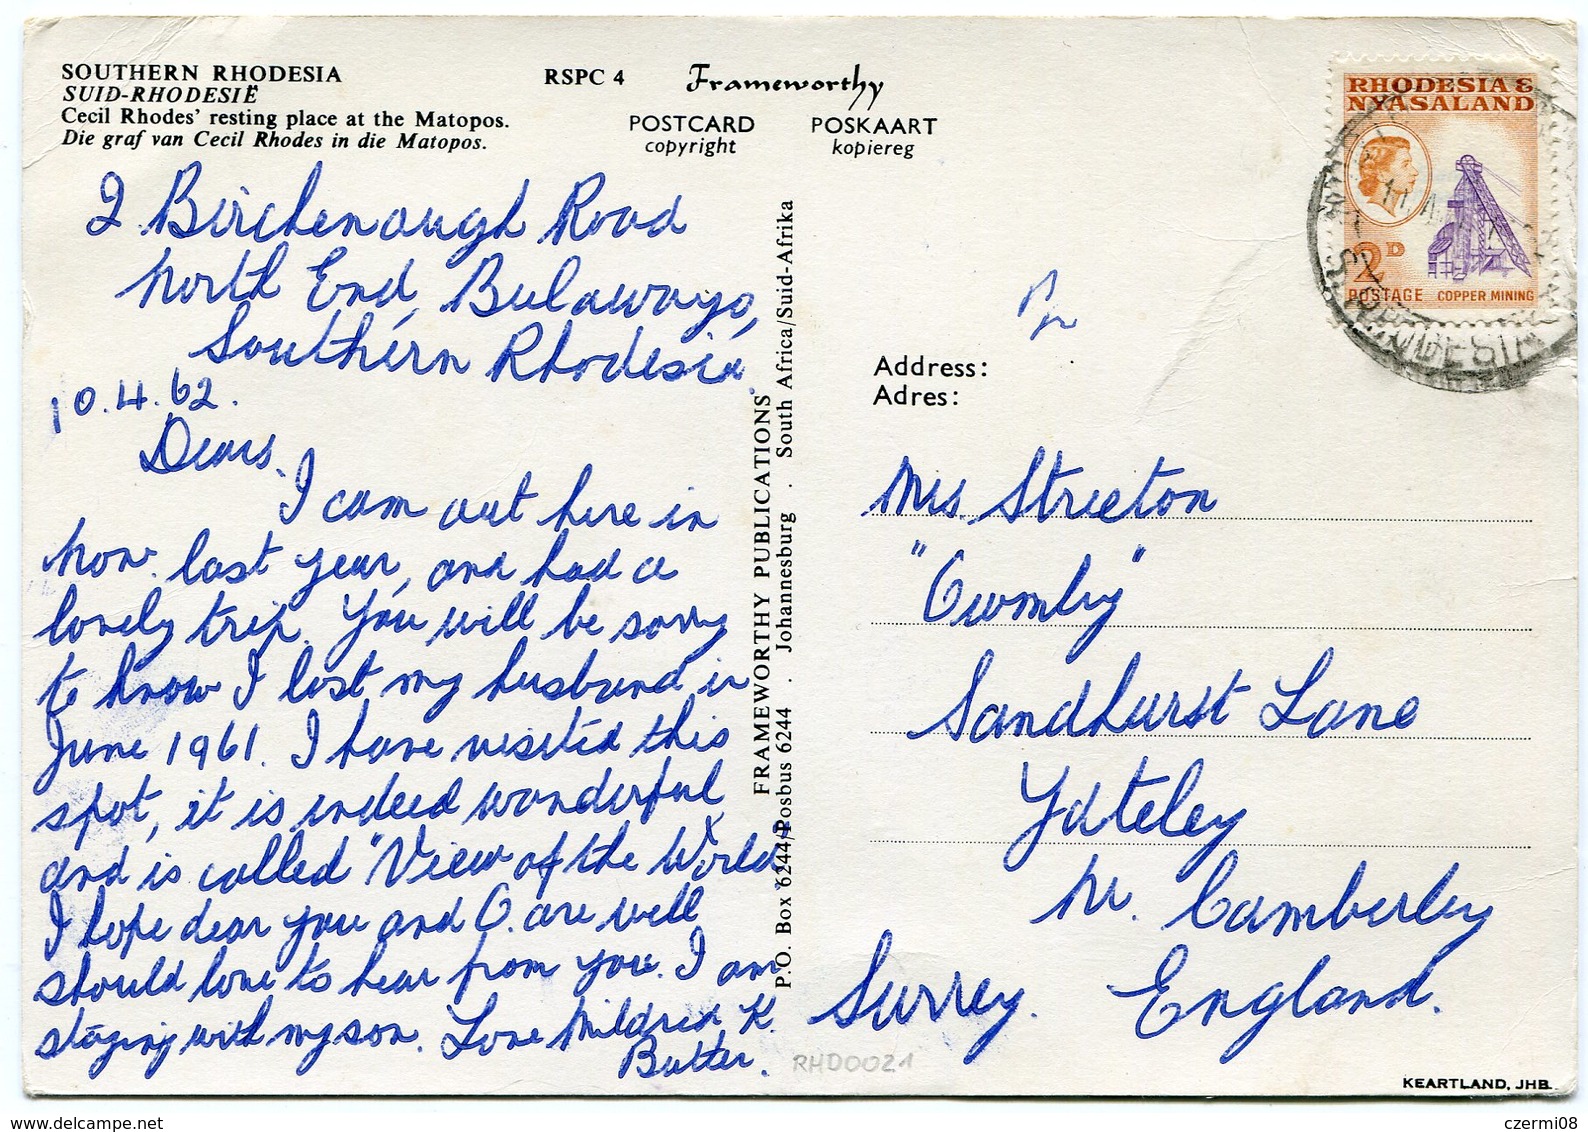 SOUTHERN RHODESIA
SUID-RHODESIË
Cecil Rhodes' resting place at the Matopos.
Die graf van Cecil Rhodes in die Matopos.
RSPC 4
Frameworthy
POSTCARD POSKAART
copyright kopiereg
2 Birchenough Road
North End, Bulawayo,
Southern Rhodesia.
10.4.62.
Dears,
I cam out here in
Nov. last year, and had a
lovely trip. You will be sorry
to know I lost my husband in
June 1961. I have visited this
spot, it is indeed wonderful
and is called "View of the World
I hope dear you and O. are well
should love to hear from you. I am
staying with my son. Love Mildred K.
Butter.
FRAMEWORTHY PUBLICATIONS
P.O. Box 6244/Posbus 6244 . Johannesburg . South Africa/Suid-Afrika
RHODESIA &
NYASALAND
2D
POSTAGE COPPER MINING
Address:
Adres:
Mrs Streeton
Sandhurst Lane
Yateley
Nr. Camberley
Surrey. England.
RHD0021
KEARTLAND, JHB.
www.delcampe.net
czermi08